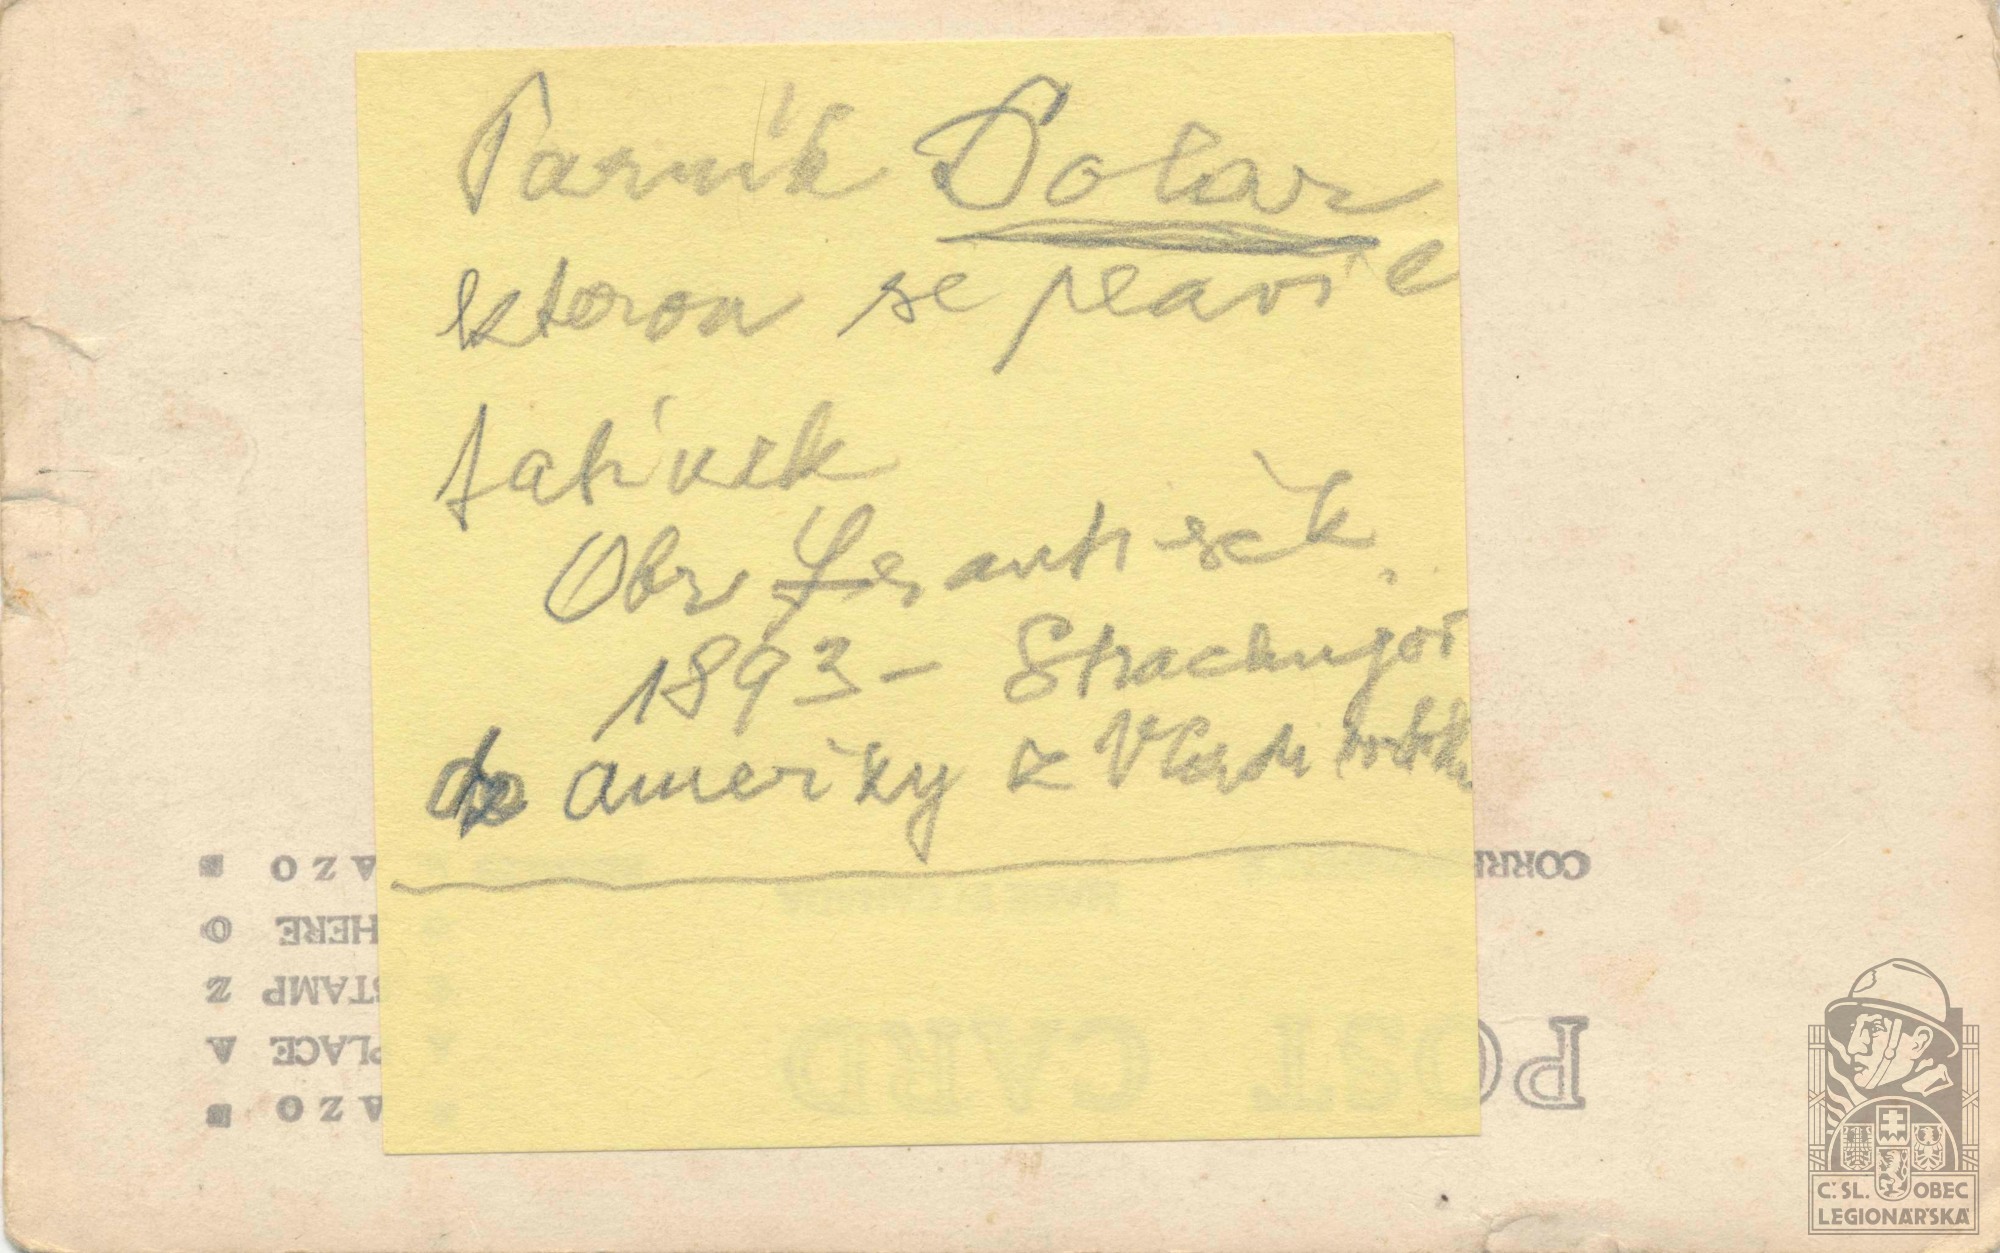 Parník Dolar
kterou se plavil
tatínek
Obr František.
1893 – Strachujov
do ameriky z Vladivostoku
CORRE
AZO
HERE O
STAMP Z
PLACE A
AZO
POST CARD
Č.SL. OBEC
LEGIONÁŘSKÁ